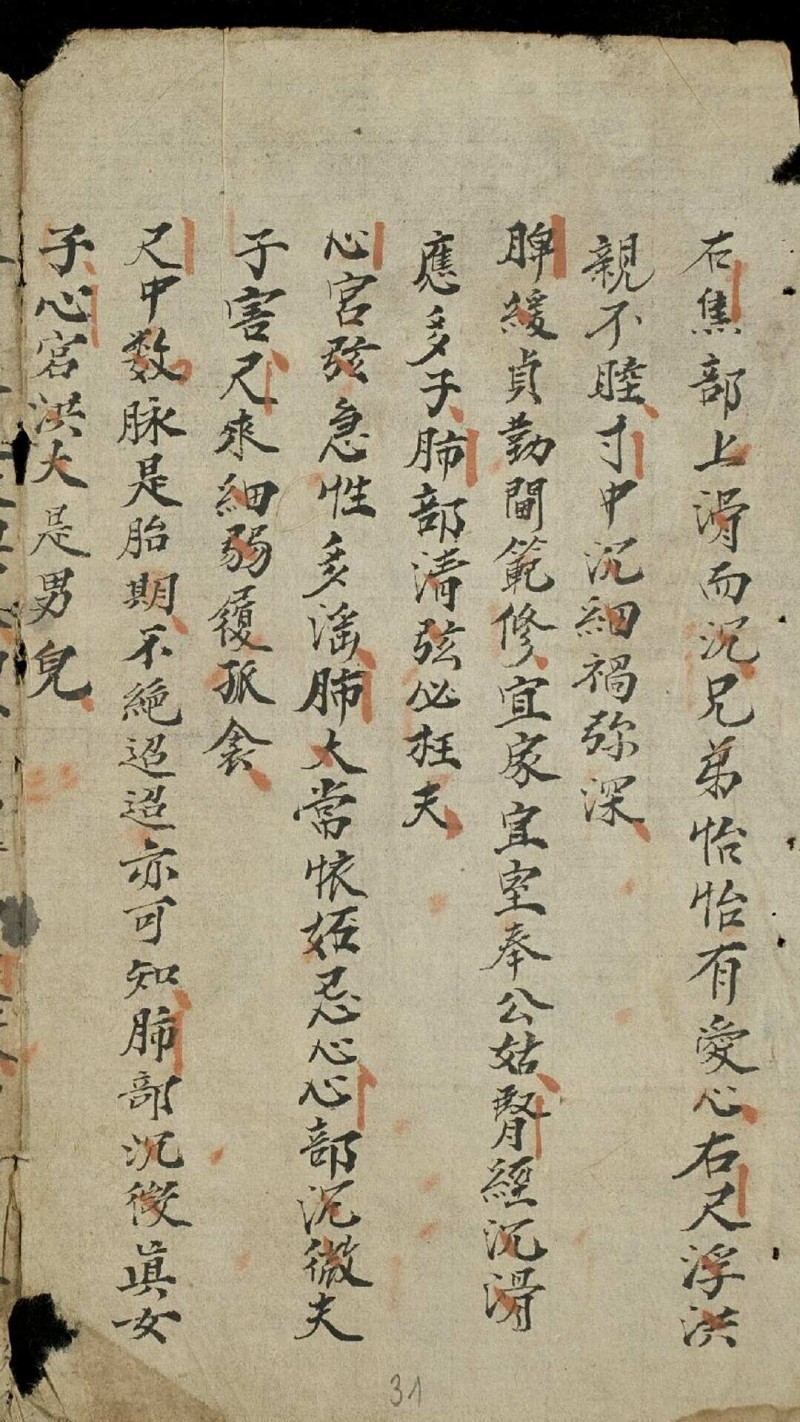 右焦部上滑而沉兄弟怡怡有愛心右尺浮洪
親不睦寸中沉細禍弥深
脾緩貞勤閫範修宜家宜室奉公姑腎經沉滑
應多子肺部清弦必狂夫
心宮弦急性多滛肺大當懐妬忌心心部沉微夫
子害尺來細弱履孤衾
尺中数脉是胎期不絶迢迢亦可知肺部沉微眞女
子心宮洪大是男兒
31